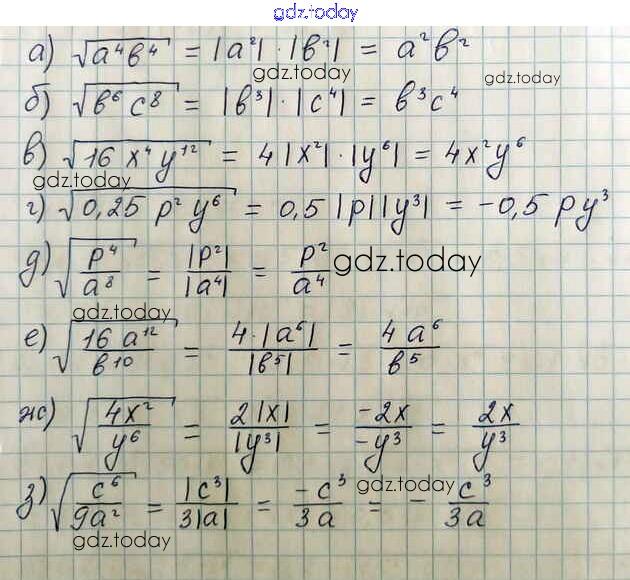 gdz.today
а) √(a⁴b⁴) = |a²| · |b²| = a²b²
gdz.today
gdz.today
б) √(b⁶c⁸) = |b³| · |c⁴| = b³c⁴
в) √(16x⁴y¹²) = 4|x²| · |y⁶| = 4x²y⁶
gdz.today
г) √(0,25p²y⁶) = 0,5|p||y³| = -0,5py³
д) √(p⁴/a⁸) = |p²|/|a⁴| = p²/a⁴
gdz.today
gdz.today
е) √(16a¹²/b¹⁰) = 4·|a⁶|/|b⁵| = 4a⁶/b⁵
ж) √(4x²/y⁶) = 2|x|/|y³| = -2x/-y³ = 2x/y³
gdz.today
з) √(c⁶/9a²) = |c³|/3|a| = -c³/3a = - c³/3a
gdz.today
gdz.today